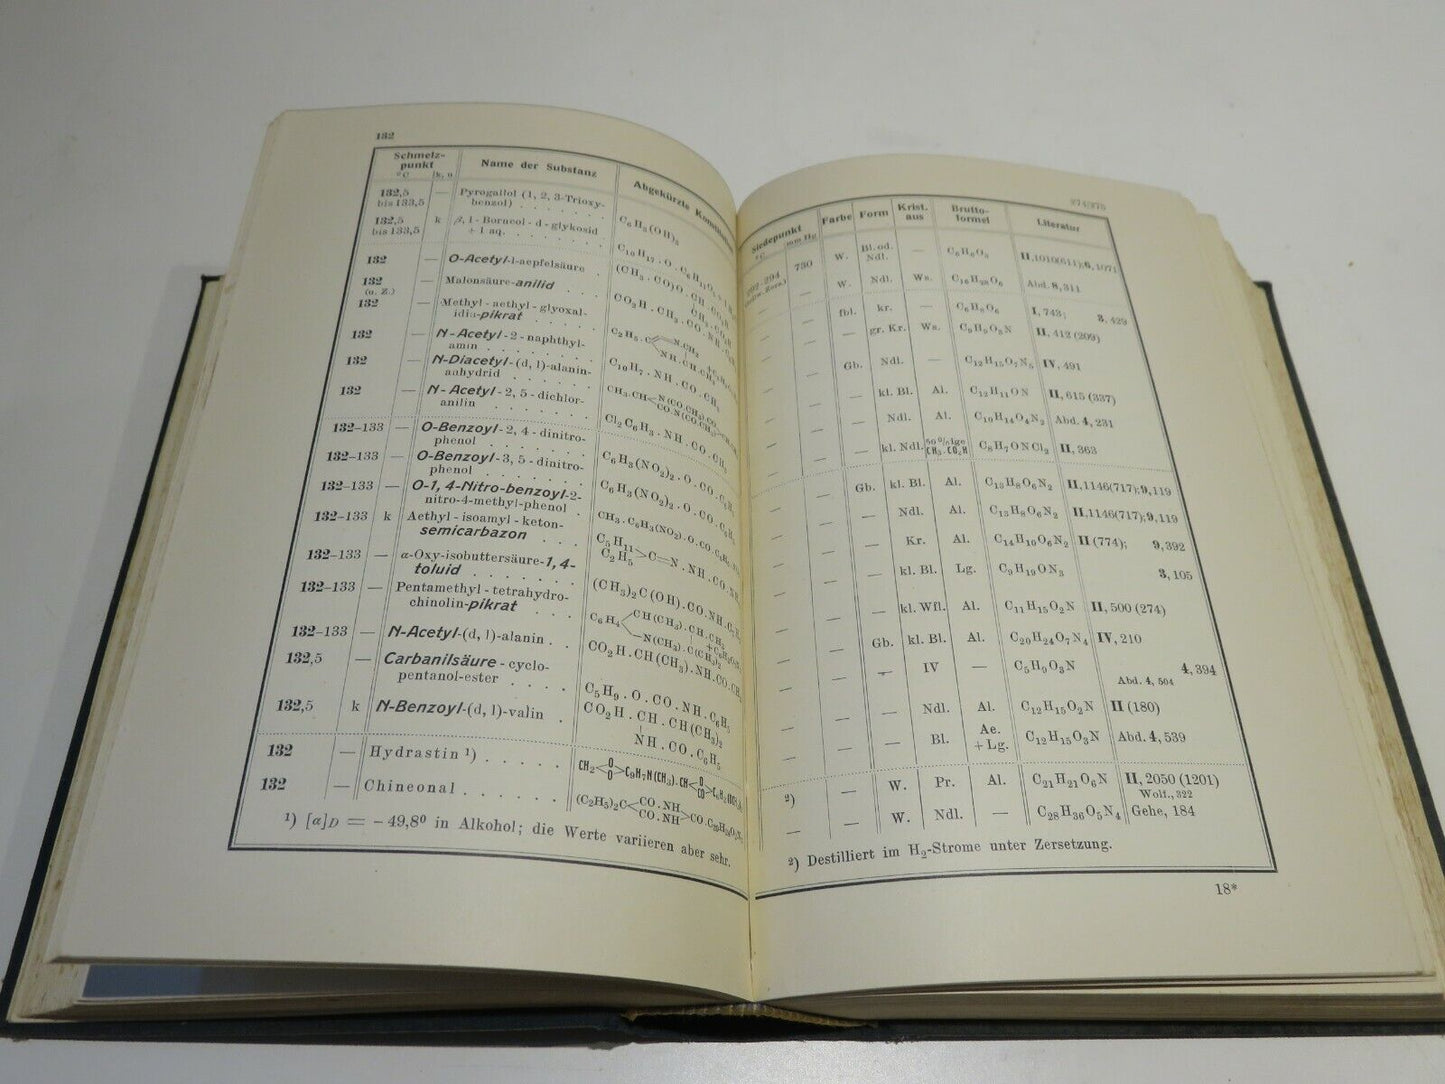 132
Schmelz-
punkt
°C k, u
Name der Substanz
Abgekürzte
132,5 — Pyrogallol (1, 2, 3-Trioxy-
bis 133,5 benzol) C₆H₃(OH)₃
132,5 k β, l - Borneol - d - glykosid
bis 133,5 + 1 aq. C₁₀H₁₇ . O . C₆H₁₁O₅
132 — O-Acetyl-l-aepfelsäure
132 — Malonsäure-anilid
(u. Z.)
132 — Methyl - aethyl - glyoxal-
idin-pikrat
132 — N-Acetyl-2-naphthyl-
amin C₁₀H₇ . NH . CO . CH₃
132 — N-Diacetyl-(d, l)-alanin-
anhydrid
132 — N-Acetyl-2, 5-dichlor-
anilin Cl₂ C₆H₃ . NH . CO . CH₃
132–133 — O-Benzoyl-2, 4-dinitro-
phenol C₆H₃(NO₂)₂ . O . CO .
132–133 — O-Benzoyl-3, 5-dinitro-
phenol C₆H₃(NO₂)₂ . O . CO .
132–133 — O-1, 4-Nitro-benzoyl-2-
nitro-4-methyl-phenol CH₃ . C₆H₃(NO₂) . O . CO .
132–133 k Aethyl - isoamyl - keton-
semicarbazon C₅H₁₁ C₂H₅ >C=N . NH . CO .
132–133 — α-Oxy-isobuttersäure-1, 4-
toluid (CH₃)₂C(OH) . CO . NH .
132–133 — Pentamethyl - tetrahydro-
chinolin-pikrat C₆H₄ CH(CH₃) . CH . CH₃
N(CH₃) . C(CH₃)₂
132–133 — N-Acetyl-(d, l)-alanin CO₂H . CH(CH₃) . NH . CO . CH₃
132,5 — Carbanilsäure - cyclo-
pentanol-ester C₅H₉ . O . CO . NH . C₆H₅
132,5 k N-Benzoyl-(d, l)-valin CO₂H . CH . CH(CH₃)₂
NH . CO . C₆H₅
132 — Hydrastin ¹)
132 — Chineonal (C₂H₅)₂C< CO . NH CO . NH >CO .
¹) [α]D = – 49,8⁰ in Alkohol; die Werte variieren aber sehr.
274/275
Siedepunkt
°C mm Hg
Farbe
Form
Krist.
aus
Brutto-
formel
Literatur
730 W. Bl. od. — C₆H₆O₃ II, 1010(611); 6, 1071
Ndl.
— W. Ndl. Ws. C₁₆H₂₈O₆ Abd. 8, 311
— fbl. kr. — C₆H₈O₆ I, 743; 3, 429
— — gr. Kr. Ws. C₉H₉O₃N II, 412 (209)
— — Gb. Ndl. — C₁₂H₁₅O₇N₅ IV, 491
— — kl. Bl. Al. C₁₂H₁₁ON II, 615 (337)
— — Ndl. Al. C₁₀H₁₄O₄N₂ Abd. 4, 231
— — kl. Ndl. 50%ige CH₃.CO₂H C₈H₇ONCl₂ II, 363
— — Gb. kl. Bl. Al. C₁₃H₈O₆N₂ II, 1146(717); 9, 119
— — — Ndl. Al. C₁₃H₈O₆N₂ II, 1146(717); 9, 119
— — — Kr. Al. C₁₄H₁₀O₆N₂ II (774); 9, 392
— — — kl. Bl. Lg. C₉H₁₉ON₃ 3, 105
— — — kl. Wfl. Al. C₁₁H₁₅O₂N II, 500 (274)
— — Gb. kl. Bl. Al. C₂₀H₂₄O₇N₄ IV, 210
— — — IV — C₅H₉O₃N 4, 394
Abd. 4, 504
— — — Ndl. Al. C₁₂H₁₅O₂N II (180)
— — — Bl. Ae. C₁₂H₁₅O₃N Abd. 4, 539
+ Lg.
²) — W. Pr. Al. C₂₁H₂₁O₆N II, 2050 (1201)
Wolf., 322
— — W. Ndl. — C₂₈H₃₆O₅N₄ Gehe, 184
²) Destilliert im H₂-Strome unter Zersetzung.
18*